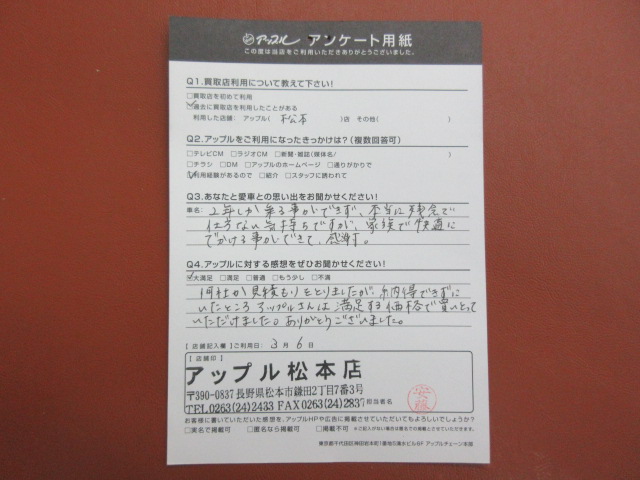 アップル アンケート用紙
この度は当店をご利用いただきありがとうございました。
Q1.買取店利用について教えて下さい!
□買取店を初めて利用
☑過去に買取店を利用したことがある
利用した店舗: アップル( 松本 )店 その他( )
Q2.アップルをご利用になったきっかけは?(複数回答可)
□テレビCM □ラジオCM □新聞・雑誌(媒体名/ )
□チラシ □DM □アップルのホームページ □通りがかりで
☑利用経験があるので □紹介 □スタッフに誘われて
Q3.あなたと愛車との思い出をお聞かせください!
車名: 2年しか乗る事ができず、本当に残念で
仕方ない気持ちですが、家族で快適に
でかける事ができて、感謝。
Q4.アップルに対する感想をぜひお聞かせください!
☑大満足 □満足 □普通 □もう少し □不満
何社か見積もりをとりましたが、納得できずに
いたところ アップルさんは満足する価格で買いとって
いただけました。ありがとうございました。
【店舗記入欄】ご利用日: 3月6日
【店舗印】
アップル松本店
〒390-0837 長野県松本市鎌田2丁目7番3号
TEL 0263(24)2433 FAX 0263(24)2837 担当者名 安藤
お客様に書いていただいた感想を、アップルHPや広告に掲載させていただいてもよろしいでしょうか?
□実名で掲載可 □匿名なら掲載可 □掲載不可 ※ご記入がない場合は匿名での掲載とさせていただきます。
東京都千代田区神田岩本町1番地岩本町ビル8F アップルチェーン本部